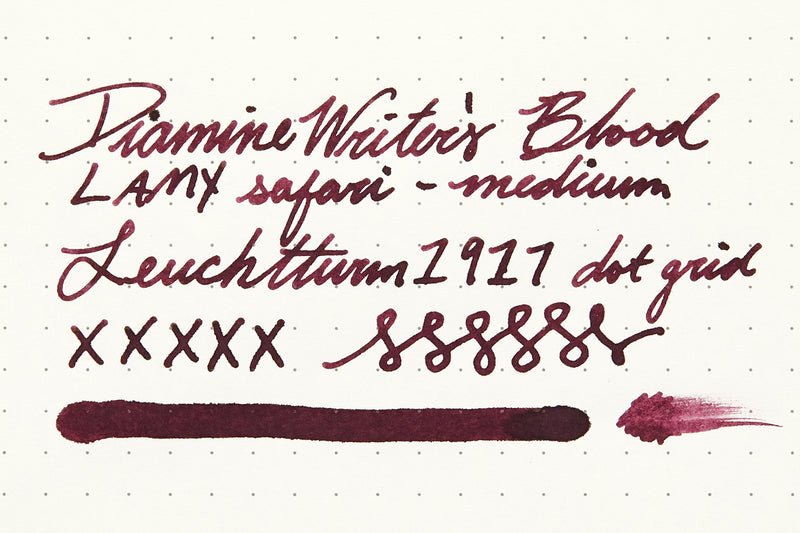 Diamine Writer's Blood
LAMY safari - medium
Leuchtturm1917 dot grid
xxxxx